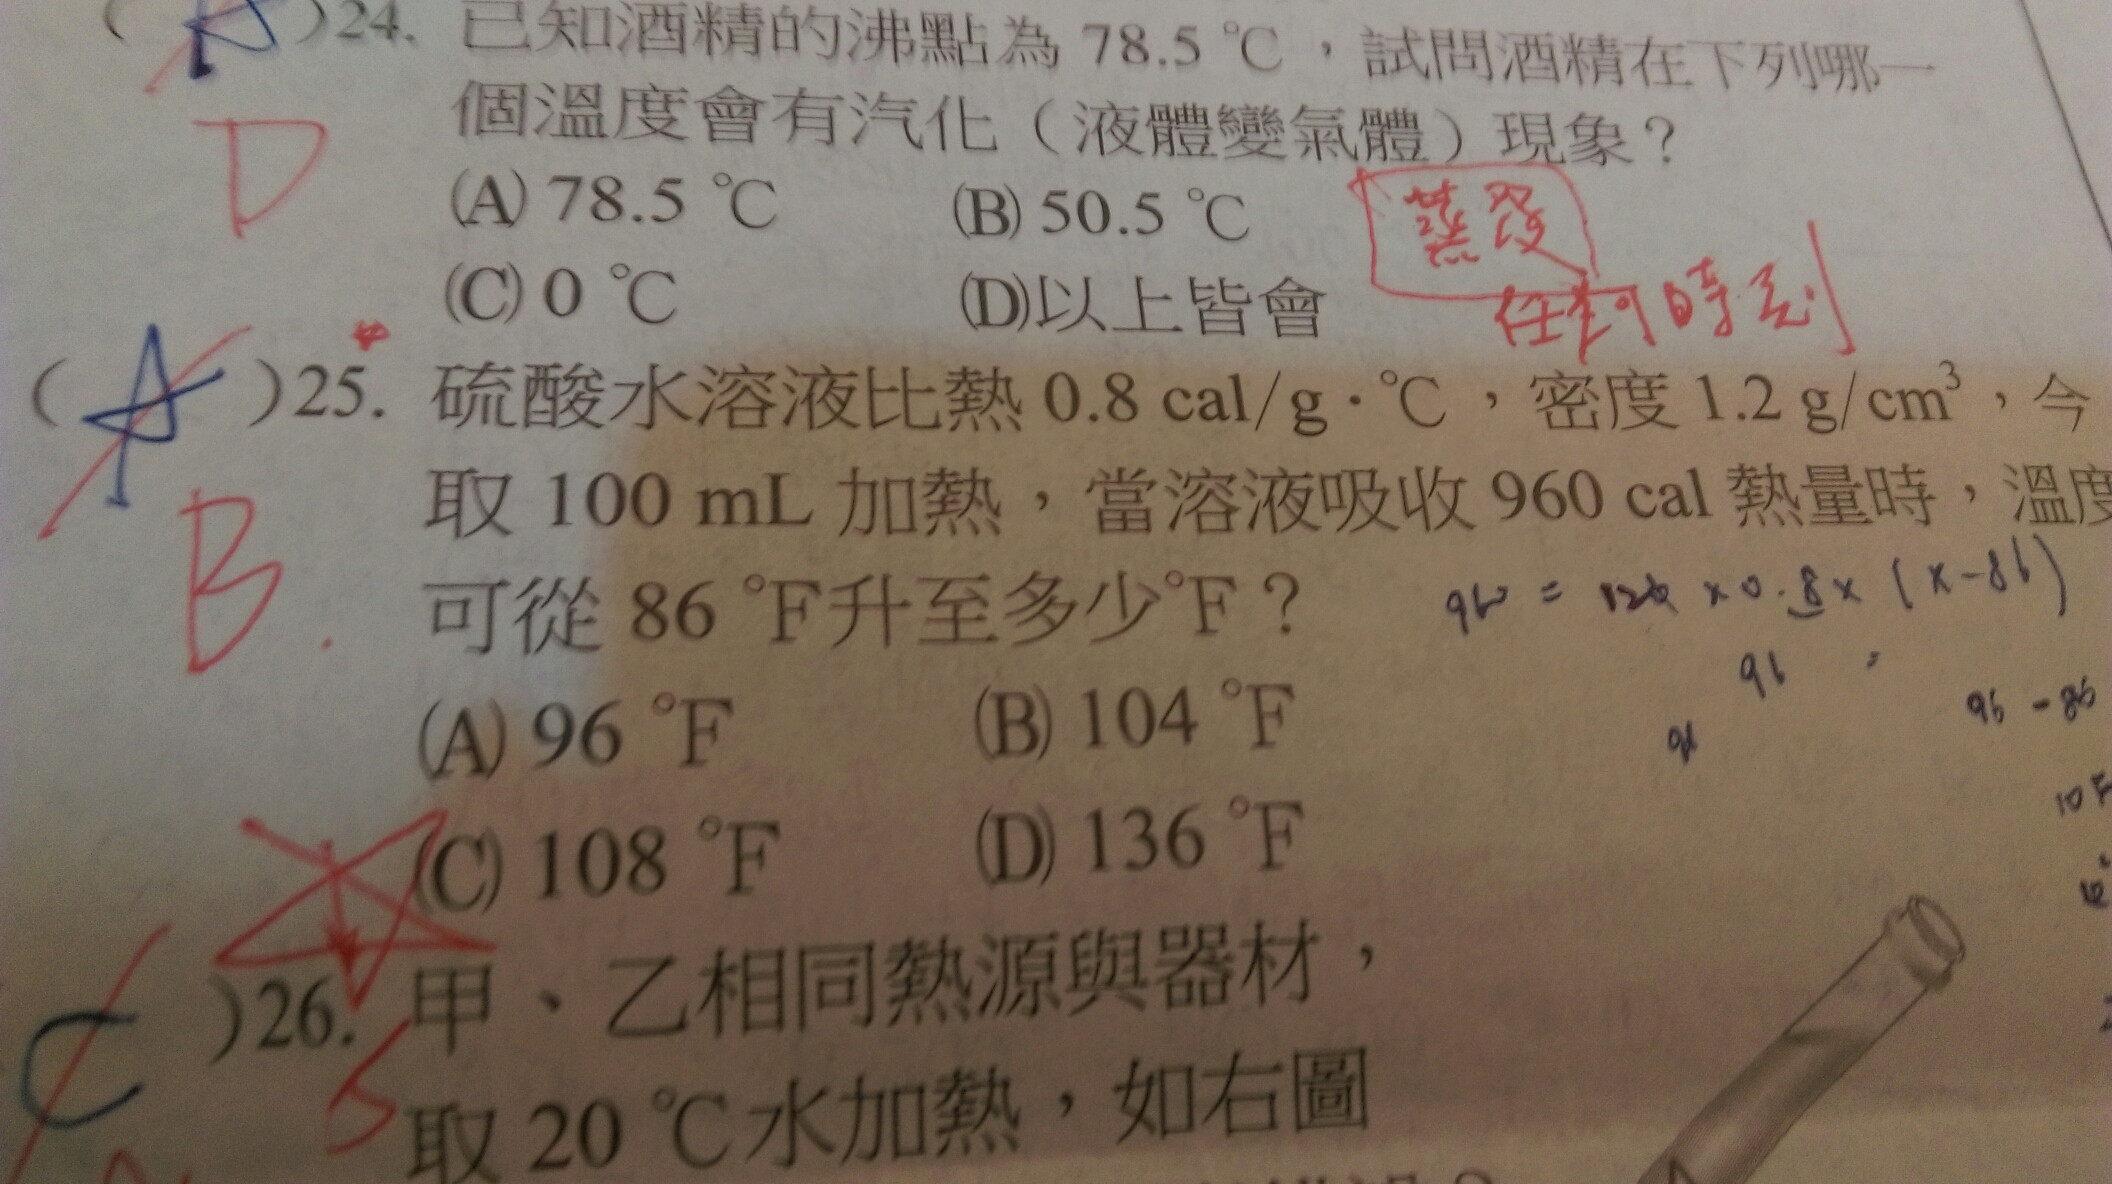 ( A )24. 已知酒精的沸點為 78.5 ℃，試問酒精在下列哪一
個溫度會有汽化（液體變氣體）現象？
D
(A) 78.5 ℃ (B) 50.5 ℃
蒸發
(C) 0 ℃ (D)以上皆會
任何時刻
( A )25. 硫酸水溶液比熱 0.8 cal/g·℃，密度 1.2 g/cm³，今
取 100 mL 加熱，當溶液吸收 960 cal 熱量時，溫度
B.
可從 86 ℉升至多少℉？
960 = 120 × 0.8 × (x-86)
96 =
96 - 86
(A) 96 ℉ (B) 104 ℉
10 F
(C) 108 ℉ (D) 136 ℉
C )26. 甲、乙相同熱源與器材，
取 20 ℃水加熱，如右圖